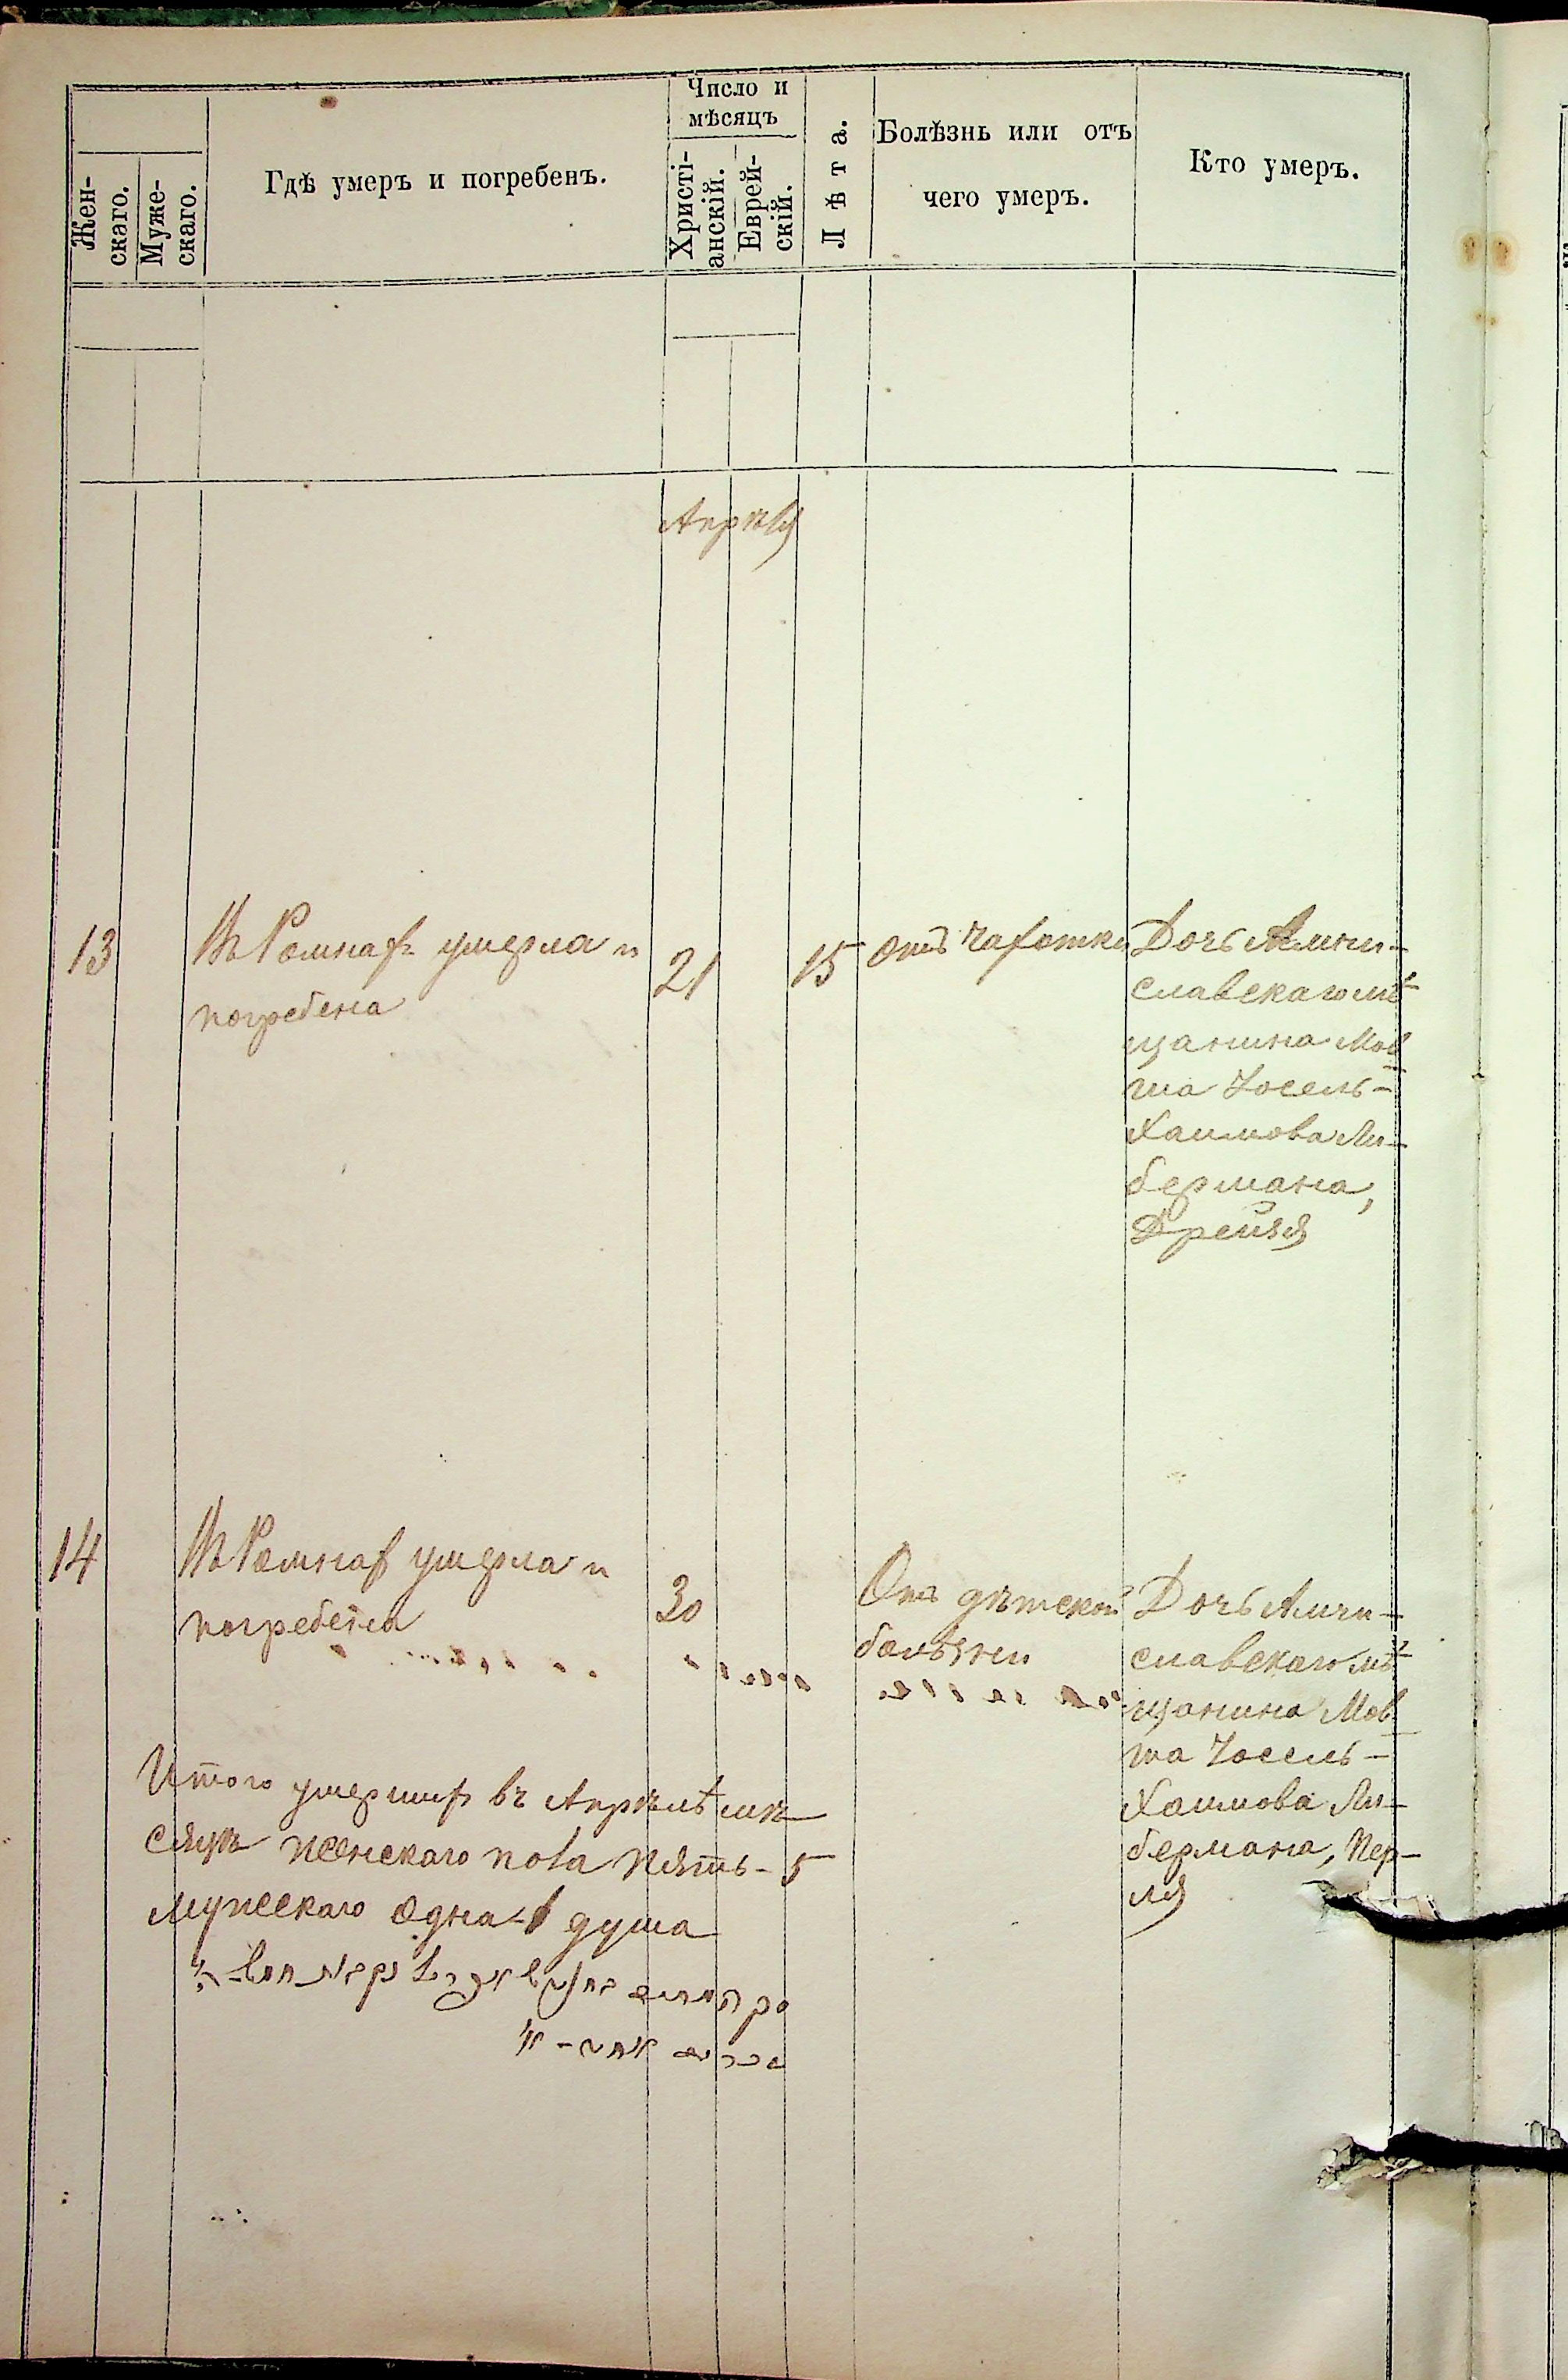 Жен-
скаго.
Муже-
скаго.
Гдѣ умеръ и погребенъ.
Число и
мѣсяцъ
Христі-
анскій.
Еврей-
скій.
Лѣта.
Болѣзнь или отъ
чего умеръ.
Кто умеръ.
Апрѣля
13
Въ Ромнах умерла и
погребена
21
15
отъ чахотки
Дочь Амчи-
славскаго мѣ-
щанина Мов
ша Іосель-
Хаимова Ли-
бермана,
Дрейзя
14
Въ Ромнах умерла и
погребена
30
Отъ дѣтской
болѣзни
Дочь Амчи-
славскаго мѣ-
щанина Мов-
ша Іосель-
Хаимова Ли-
бермана, Пер-
ля
Итого умерших въ Апрѣлѣ мѣ-
сяцѣ женскаго пола пять-5
мужескаго одна-1 душа